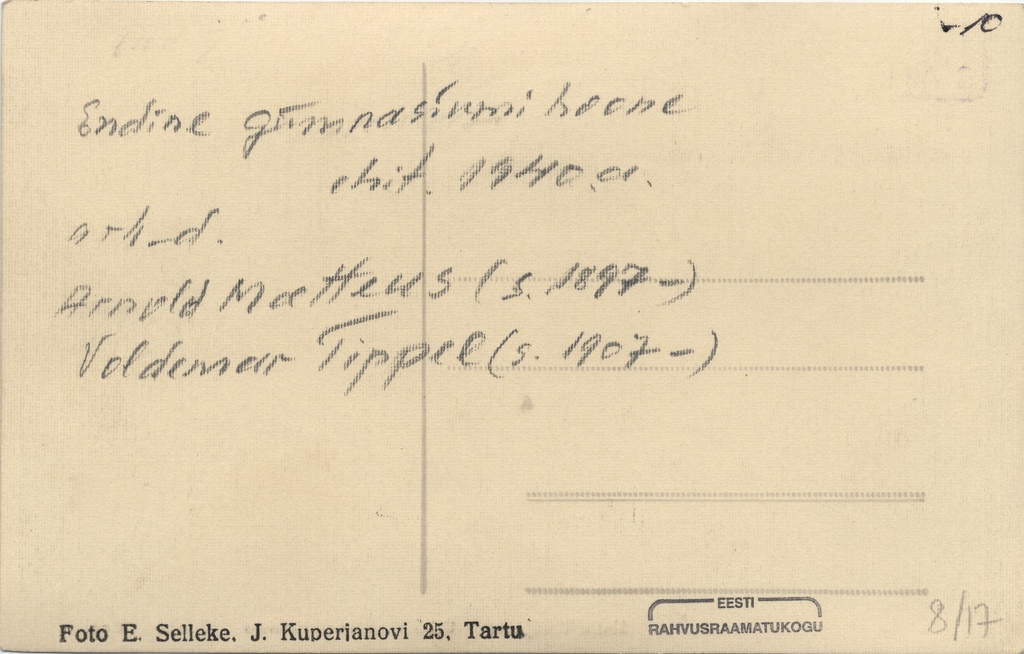 -10
Endine gümnaasiumi hoone
ehit. 1940.a.
arh-d.
Arnold Matteus (s. 1897-)
Voldemar Tippel (s. 1907-)
Foto E. Selleke. J. Kuperjanovi 25, Tartu
EESTI
RAHVUSRAAMATUKOGU
8/17